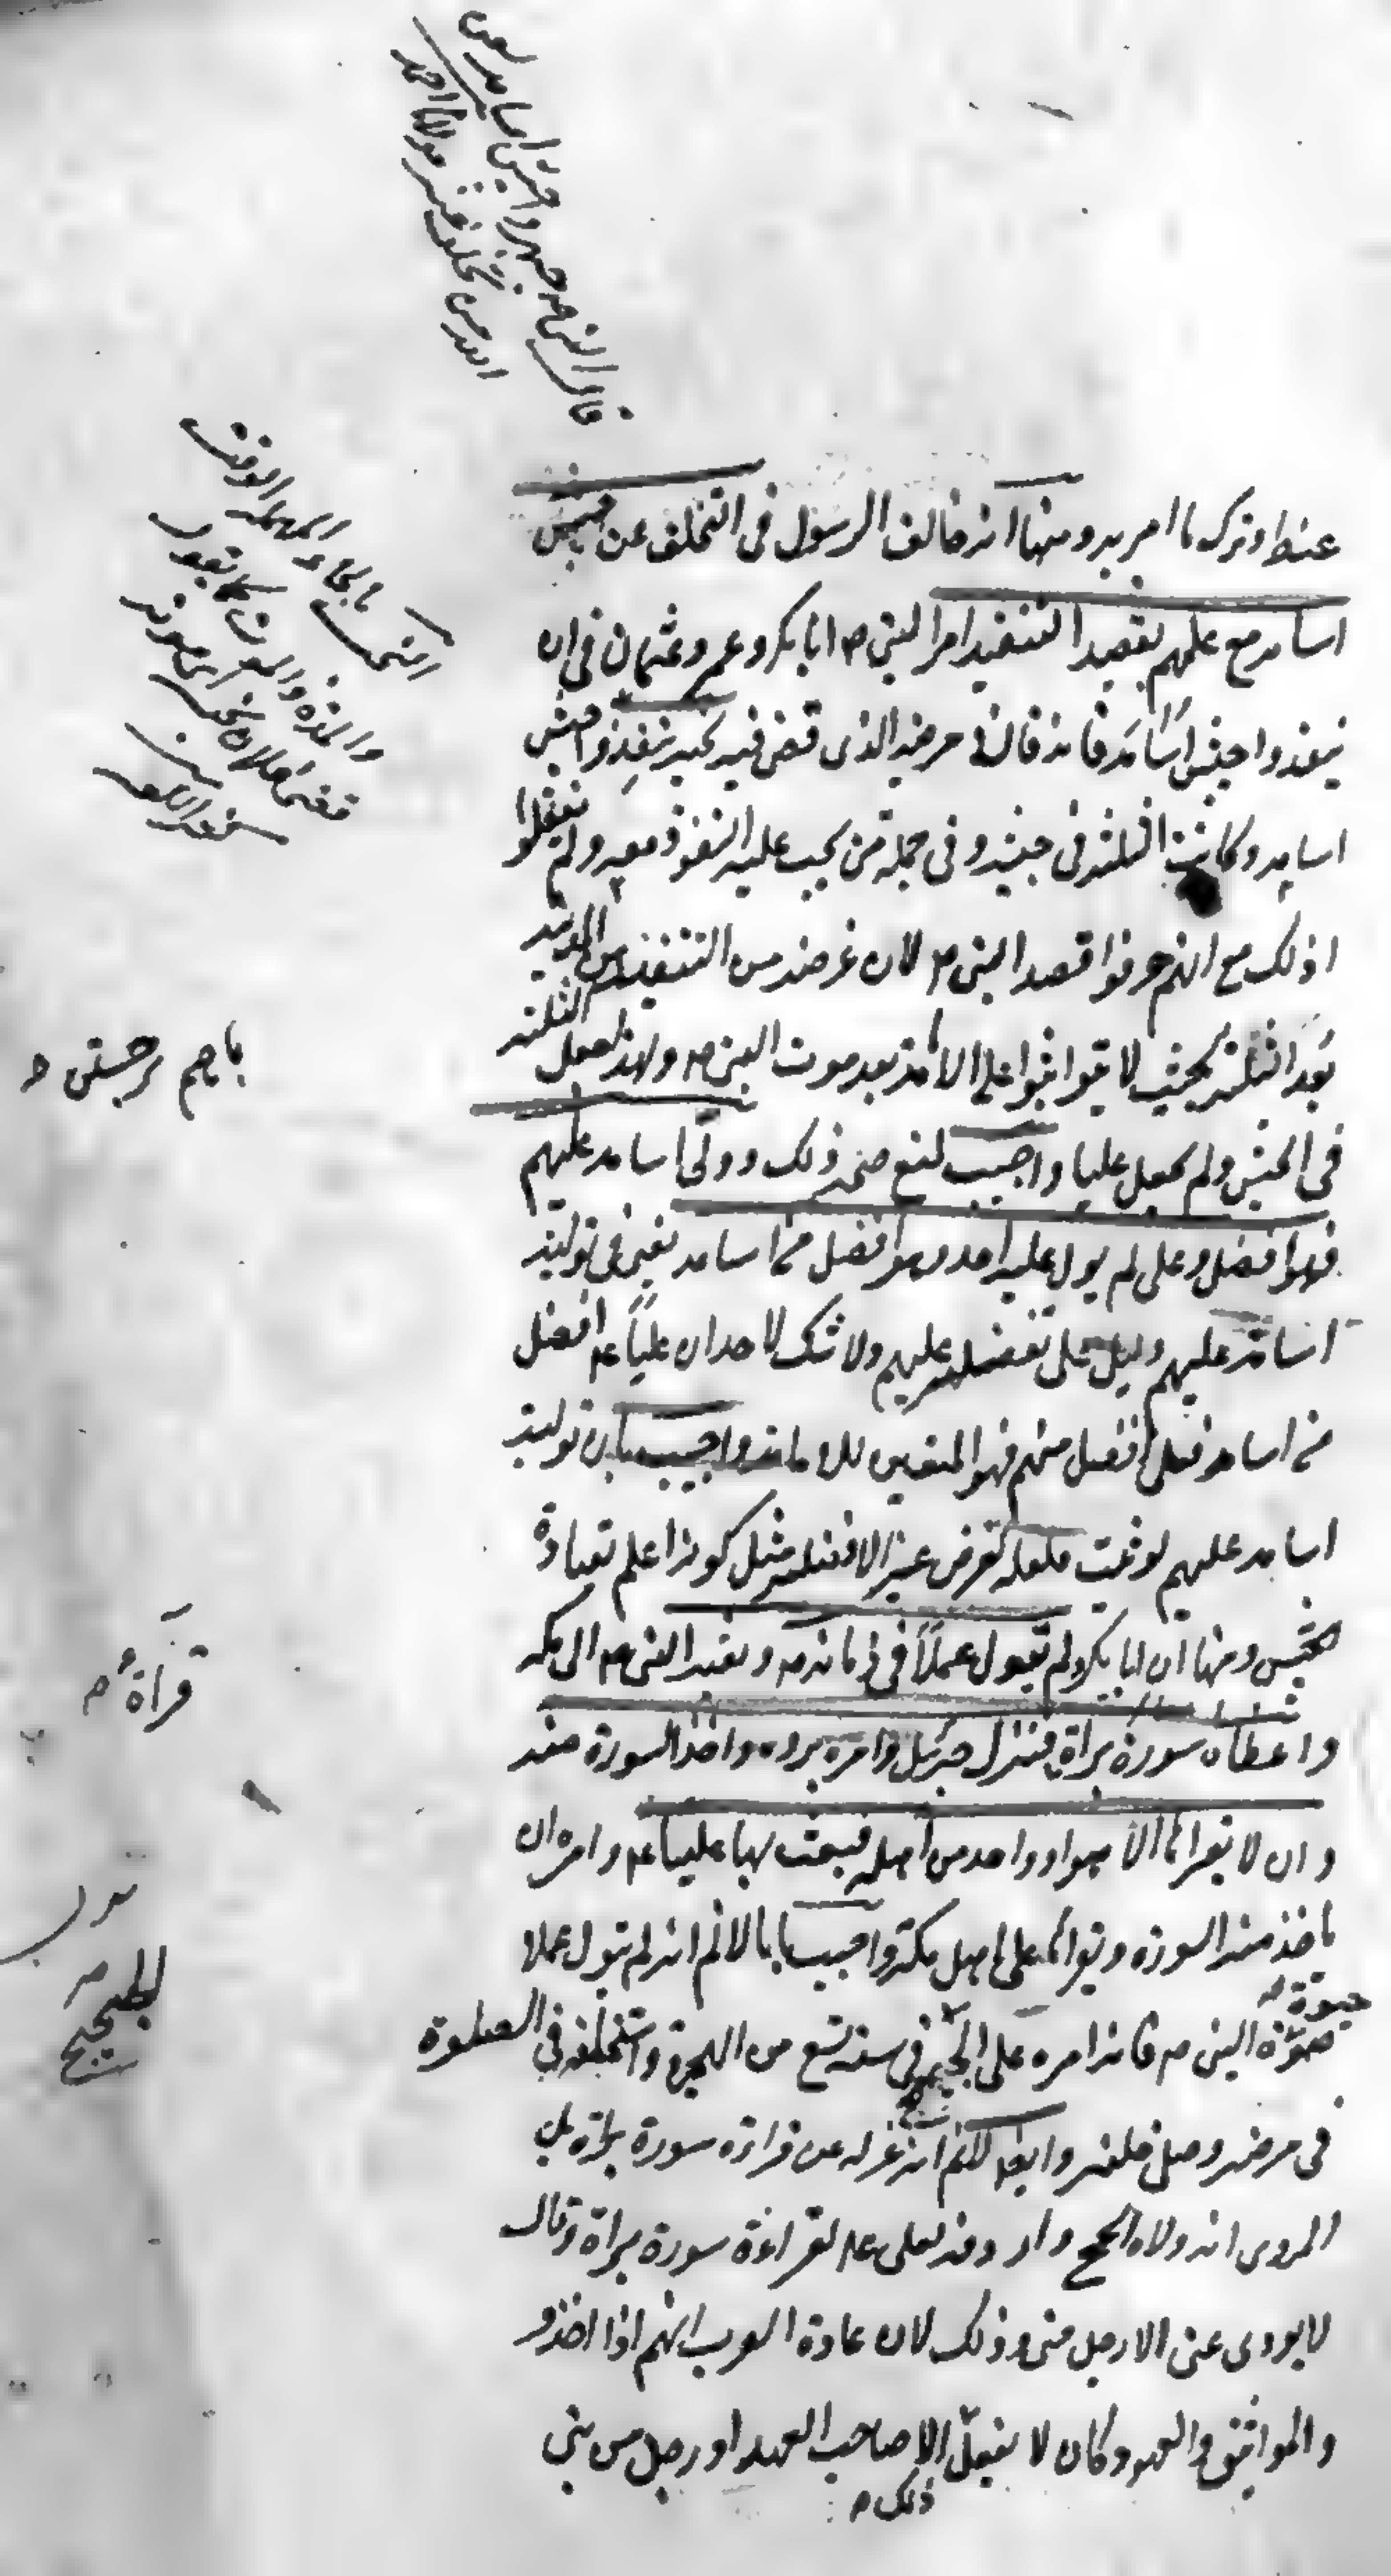 قال النبي ص جهزوا جيش اسامة لعن
الله من تخلف عنه مولانا احمد
عنه او ترك ما امر به ومنها انه خالف الرسول في التخلف عن جيش
اسامة مع علمهم بقصد التنفيذ امر النبي ص ابا بكر وعمر وعثمان في ان
ينفذوا جيش اسامة فانه قال في مرضه الذي قضى فيه نحبه نفذوا جيش
اسامة وكانت الثلثة في جيشه وفي جملة من يجب عليه النفوذ معه ولم يفعلوا
ذلك مع انهم عرفوا قصد النبي ص لان غرضه من التنفيذ من المدينة
بعد الثلثة بحيث لا يتواثبوا على الامامة بعد موت النبي ص ولهذا جعل الثلثة
في الجيش ولم يجعل عليا واجيب بمنع صحة ذلك وولى اسامة عليهم
فهو افضل وعلي لم يول عليه احد وهو افضل من اسامة يعني في تولية
اسامة عليهم دليل على تفضيله عليهم ولا شك لاحد ان عليا ع افضل
من اسامة فعلي افضل منهم فهو المتعين للامامة واجيب بان تولية
اسامة عليهم لو ثبت فلعله لغرض غير الافضلية مثل كونه اعلم بقيادة
الجيش ومنها ان ابا بكر لم يتول عملا في زمانه ص وبعثه النبي ص الى مكة
واعطاه سورة براة فنزل جبرئيل وامره برده واخذ السورة منه
وان لا يقراها الا هو او واحد من اهله فبعث بها عليا ع وامره ان
ياخذ منه السورة ويقراها على اهل مكة واجيب بانا لا نم انه لم يتول عملا
حيوة النبي ص فانه امره على الحجيج في سنة تسع من الهجرة واستخلفه في الصلوة
في مرضه وصلى خلفه وايضا لا نم انه عزله عن قراءة سورة براة بل
المروى انه ولاه الحج واردفه بعلي ع لقراءة سورة براة وقال
لا يودى عني الا رجل مني وذلك لان عادة العرب انهم اذا اخذوا
والمواثيق والعهود كان لا يفعل الا صاحب العهد او رجل من بني
ذلك م
النحب بالحاء المهملة الوقت
والمدة والموت كما يقول
قضى فلان نحبه اى موته
باهم برجستن م
قراة م
الحجيج